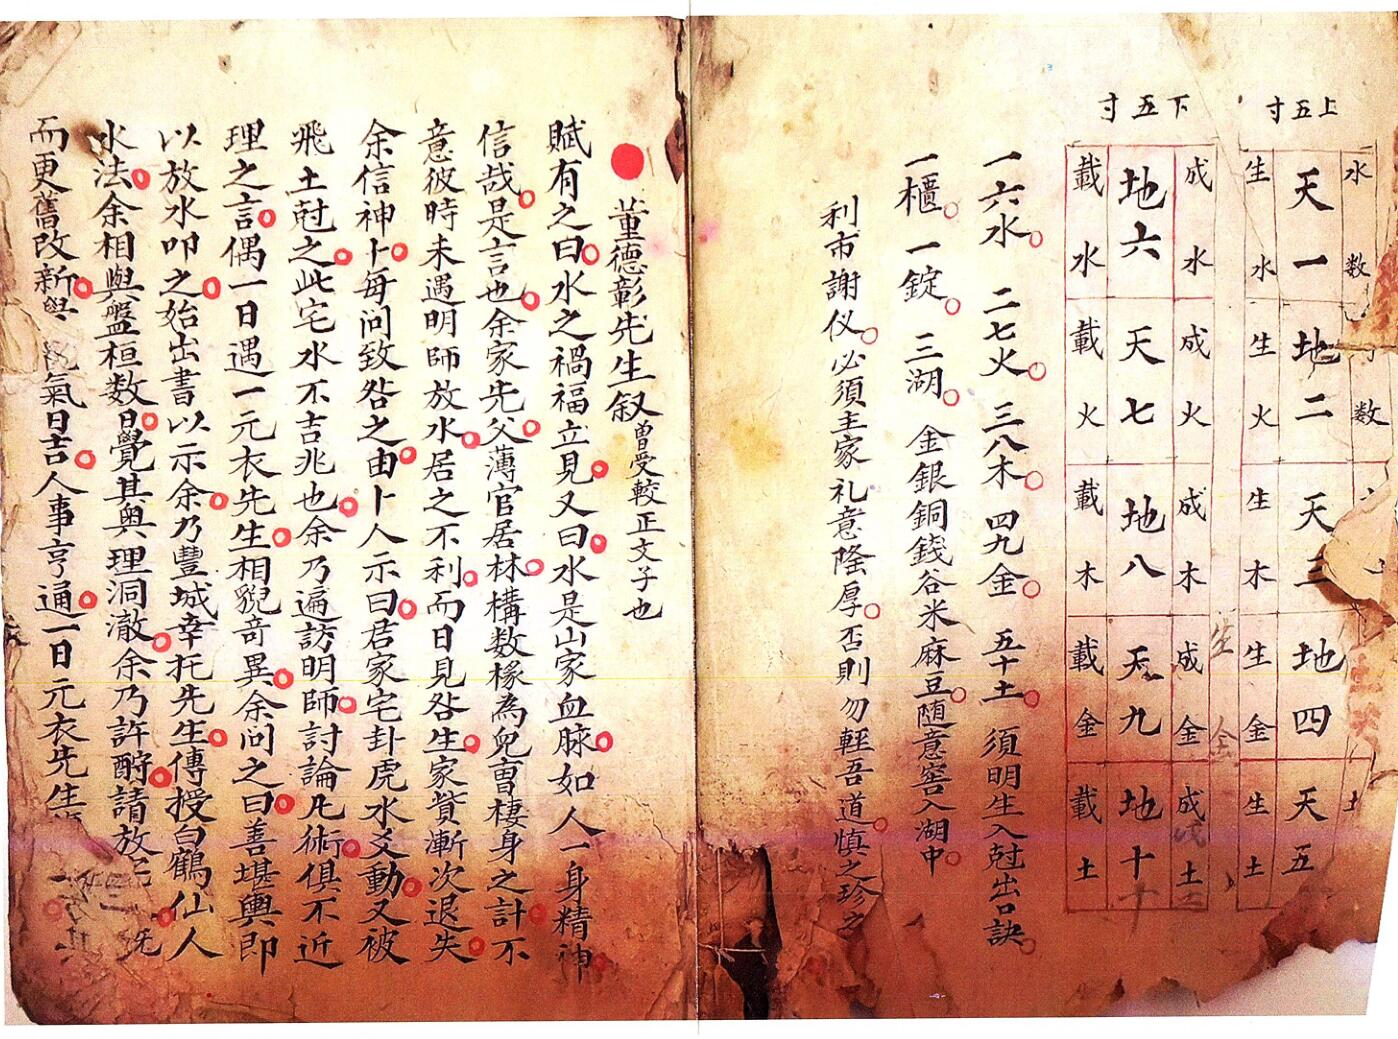 上五寸
水 数 数 土
天一 地二 天三 地四 天五
生水 生火 生木 生金 生土
下五寸
成水 成火 成木 成金 成土
地六 天七 地八 天九 地十
載水 載火 載木 載金 載土
一六水 二七火 三八木 四九金 五十土 須明生入尅出口訣
一櫃 一錠 三湖 金銀銅錢谷米麻豆随意窖入湖中
利市謝仪必須主家礼意隆厚否則勿輕吾道慎之珍之
董德彰先生叙曾受較正文子也
賦有之曰水之禍福立見又曰水是山家血脉如人一身精神
信哉是言也余家先父薄官居林構数椽為児曺棲身之計不
意彼時未遇明師放水居之不利而日見咎生家貲漸次退失
余信神卜每问致咎之由卜人示曰君家宅卦虎水爻動又被
飛土尅之此宅水不吉兆也余乃遍訪明師討論凢術俱不近
理之言偶一日遇一元衣先生相貌奇異余问之曰善堪輿即
以放水叩之始出書以示余乃豐城幸托先生傳授白鶴仙人
水法余相與盤桓数日覺其奥理洞澈余乃許酧請放宅
而更舊改新 氣日吉人事亨通一日元衣先生